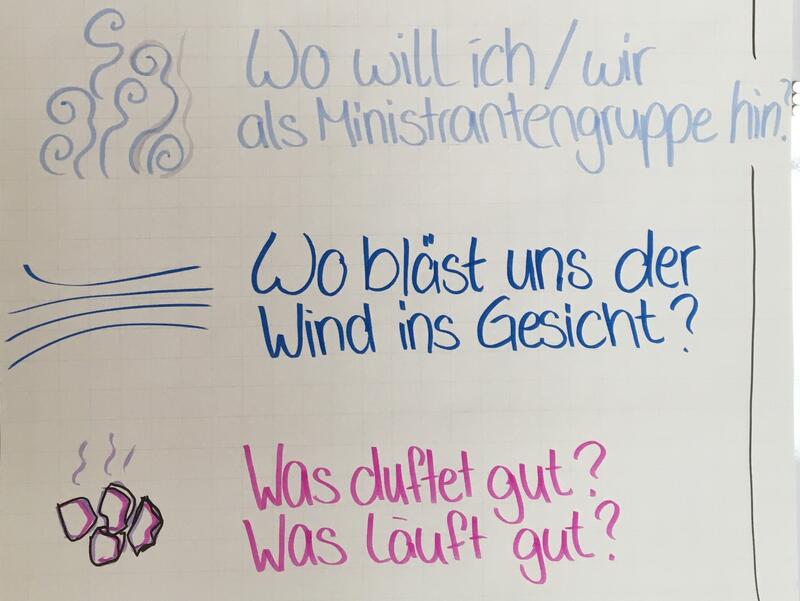 Wo will ich/wir
als Ministrantengruppe hin?
Wo bläst uns der
Wind ins Gesicht?
Was duftet gut?
Was läuft gut?